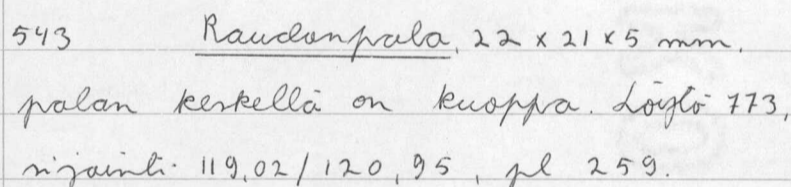 543 Raudanpala, 22 x 21 x 5 mm,
palan keskellä on kuoppa. Löytö 773,
sijainti. 119,02/120,95, pl 259.